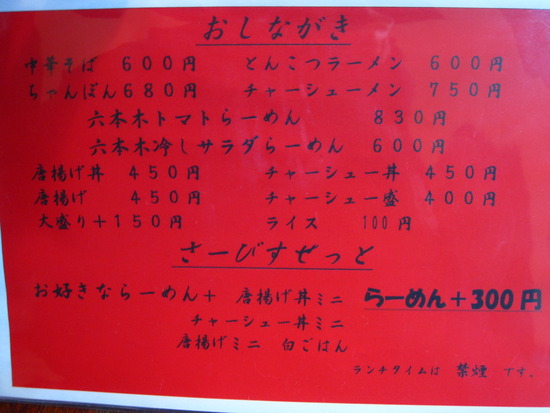 おしながき
中華そば 600円 とんこつラーメン 600円
ちゃんぽん680円 チャーシューメン 750円
六本木トマトらーめん 830円
六本木冷しサラダらーめん 600円
唐揚げ丼 450円 チャーシュー丼 450円
唐揚げ 450円 チャーシュー盛 400円
大盛り+150円 ライス 100円
さーびすせっと
お好きならーめん+ 唐揚げ丼ミニ らーめん+300円
チャーシュー丼ミニ
唐揚げミニ 白ごはん
ランチタイムは 禁煙 です。